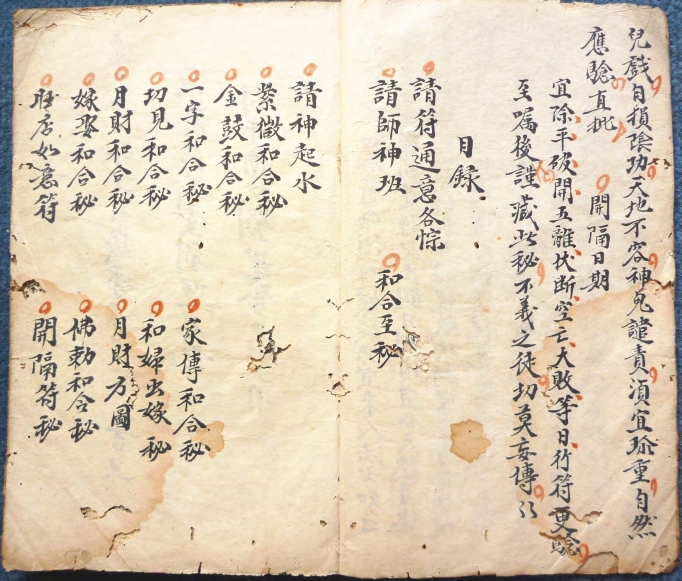 兒戲自損陰功天地不容神鬼譴責須宜珎重自然
應驗直批 開隔日期
宜除平破開五離伏断空亡大敗等日行符更驗
至嘱後謹藏此秘不義之徒切莫妄傳
目録
請符通意各悰
請師神班 和合至秘
請神起水
紫微和合秘
金鼓和合秘
一字和合秘 家傳和合秘
切見和合秘 和婦出嫁秘
月財和合秘 月財方圖
嫁娶和合秘 佛勅和合秘
如意符 開隔符秘